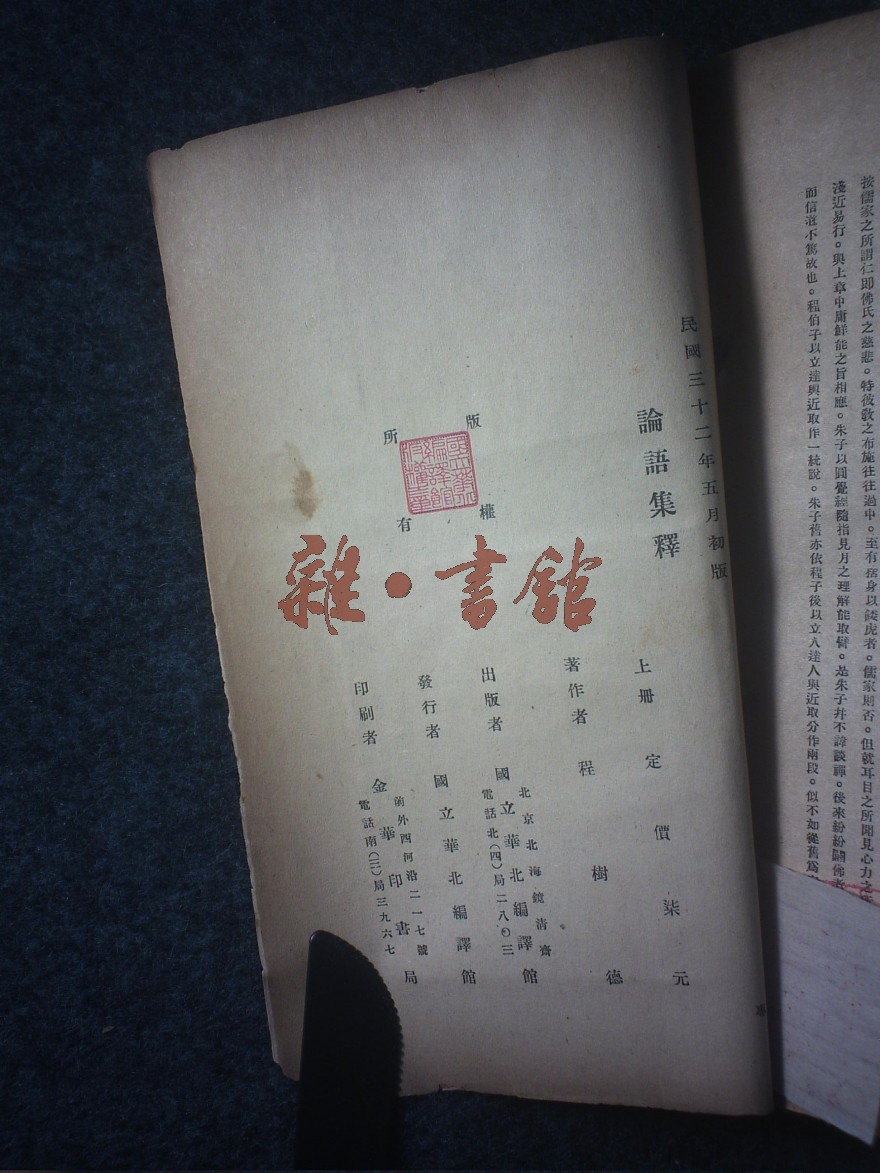 按儒家之所謂仁即佛氏之慈悲。特彼敎之布施往往過中。至有捨身以餧虎者。儒家則否。但就耳目之所聞見心力之
淺近易行。與上章中庸鮮能之旨相應。朱子以圓覺經隨指見月之理解能取譬。是朱子幷不諱談禪。後來紛紛闢佛
而信道不篤故也。程伯子以立達與近取作一統說。朱子舊亦依程子後以立人達人與近取分作兩段。似不如從舊爲
民國三十二年五月初版
論語集釋
上册 定價柒元
著作者 程樹德
版權
所有
出版者 國立華北編譯館
北京北海鏡清齋
電話北(四)局二八〇三
發行者 國立華北編譯館
印刷者 金華印書局
前外西河沿二一七號
電話南(三)局三九六七
雜·書館